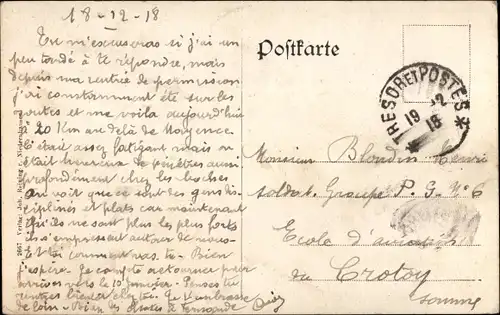 18-12-18
Tu m'excuseras si j'ai un
peu tardé à te répondre, mais
depuis ma rentrée de permission
j'ai constamment été sur les
routes et me voila aujourd'hui
à 20 Km au delà de Mayence
C'était assez fatigant mais on
était heureux de pénétrer aussi
profondément chez les boches
on voit que ce sont des gens dis-
ciplinés et plats car maintenant
qu'ils ne sont plus les plus forts
ils s'empressent autour de nous
Et toi comment vas-tu - Bien
j'espère. Je compte
arriver vers le 10 janvier. Penses tu
rentrer bientôt chez toi. Je t'embrasse
de loin - Bien des
Postkarte
TRESOR ET POSTES
19 12
18
Monsieur Blondin Henri
soldat Groupe P. G. N° 6
Ecole d'aviation
Crotoy
Somme
Verlag Joh.